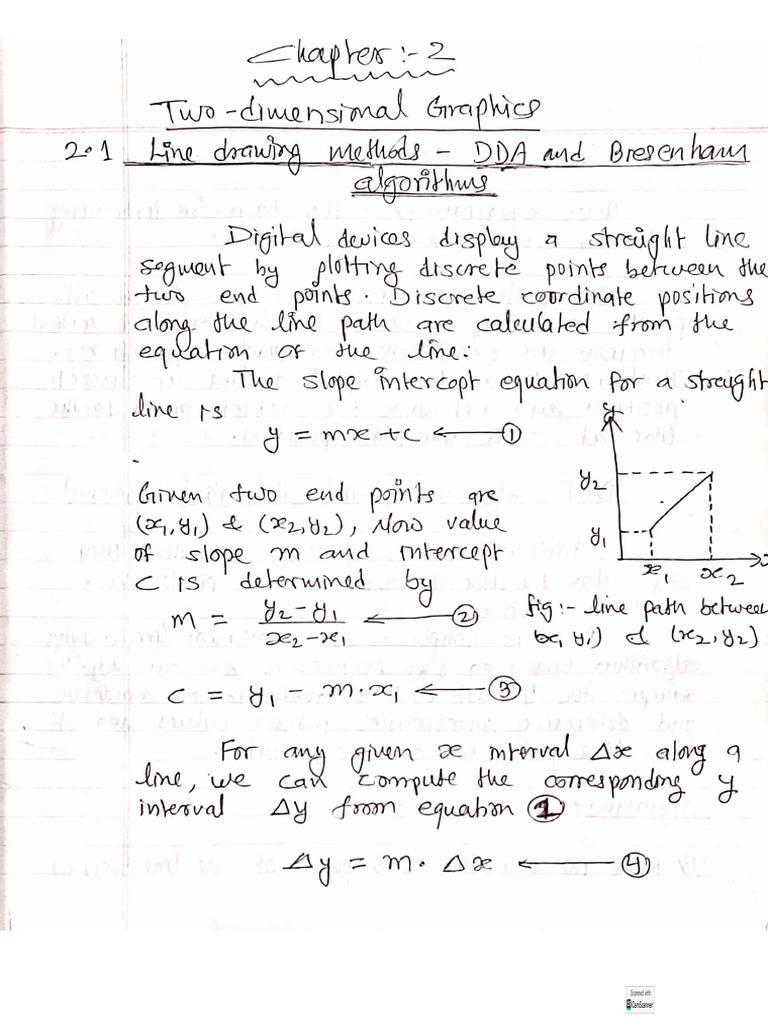 Chapter :- 2
Two-dimensional Graphics
2.1 Line drawing methods - DDA and Bresenham
algorithms
Digital devices display a straight line
segment by plotting discrete points between the
two end points. Discrete coordinate positions
along the line path are calculated from the
equation of the line.
The slope intercept equation for a straight
line is
y = mx + c ← ①
Given two end points are
(x₁, y₁) & (x₂, y₂), Now value
of slope m and intercept
C is determined by
m = (y₂ - y₁) / (x₂ - x₁) ← ②
c = y₁ - m · x₁ ← ③
y
y₂
y₁
x₁ x₂ x
fig :- line path between
(x₁ y₁) & (x₂, y₂)
For any given x interval Δx along a
line, we can compute the corresponding y
interval Δy from equation ①
Δy = m · Δx ← ④
Scanned with
CamScanner